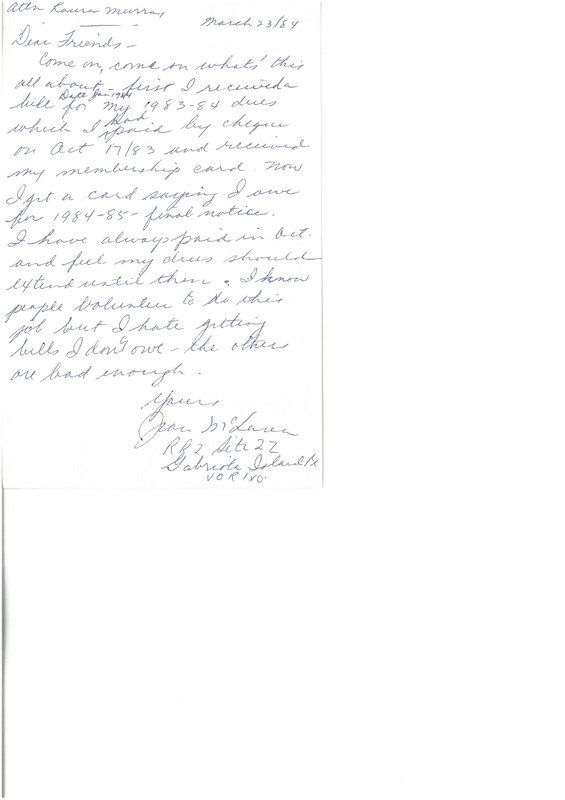 Attn Laura Murray
March 23/84
Dear Friends -
Come on, come on what's this
all about - first I received a
Date Jan 1984
bill for my 1983-84 dues
which I had paid by cheque
on Oct 17/83 and received
my membership card. Now
I get a card saying I owe
for 1984-85 - final notice.
I have always paid in Oct.
and feel my dues should
extend until then. I know
people volunteer to do this
job but I hate getting
bills I don't owe - the others
are bad enough.
Yours
Jean McLaren
RR2 Site 22
Gabriola Island
V0R 1X0